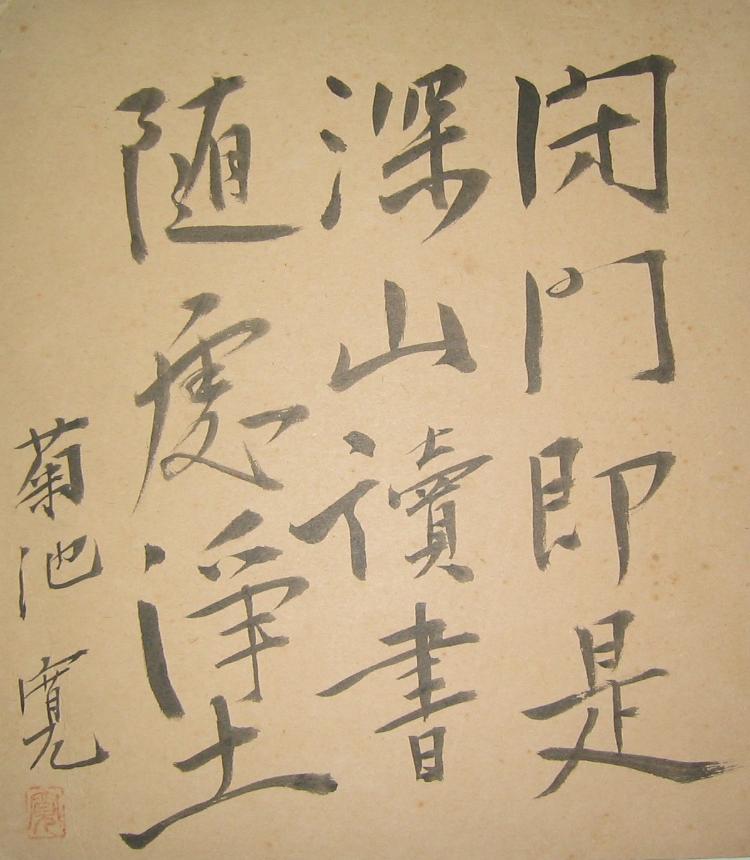 閉門即是
深山讀書
随處浄土
菊池寛
寛